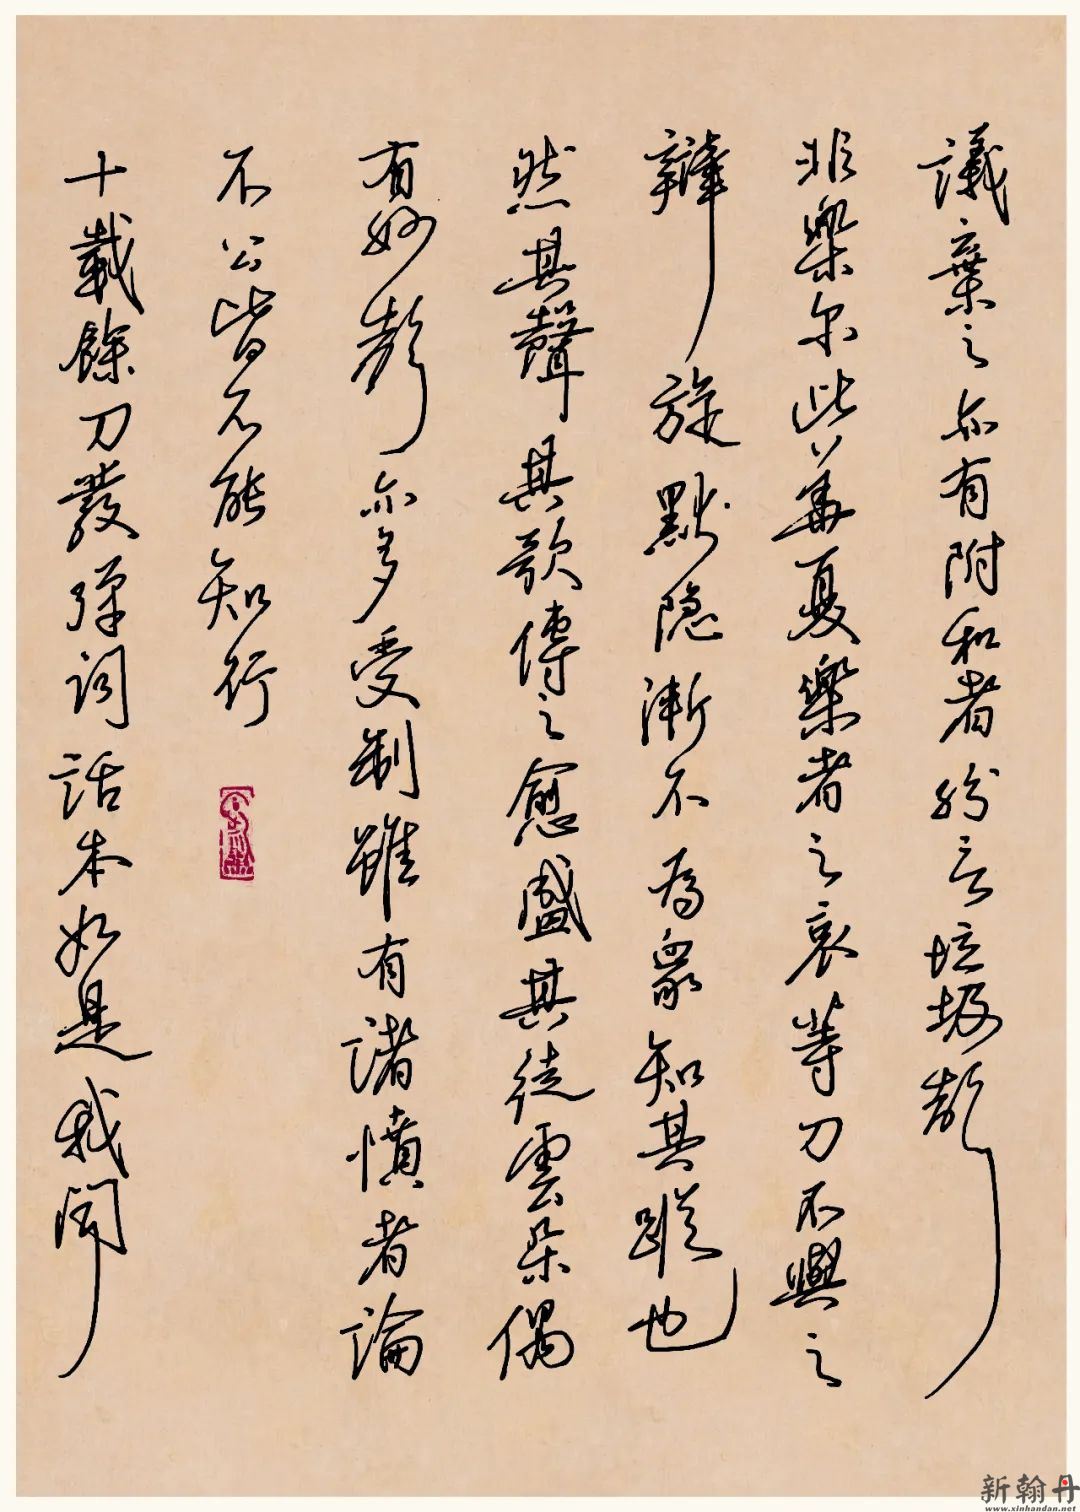 議棄之亦有附和者紛言垃圾聲
非樂尔此乃華夏樂者之哀等刀不與之
辯旋默隐漸不為衆知其蹤也
然其聲其歌傳之愈盛其徒雲朵偶
有妙聲亦多受制雖有諸憤者論
不公皆不能知行
十載餘刀發弹词話本如是我聞
新翰丹
www.xinhandan.net